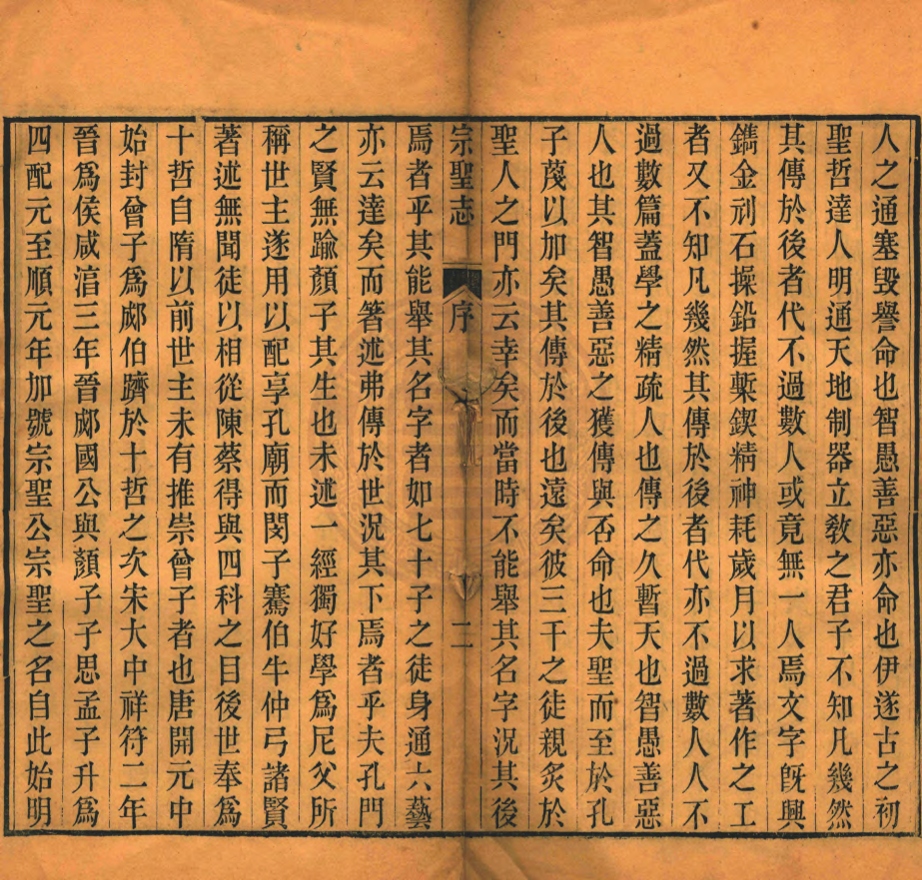 人之通塞毀譽命也智愚善惡亦命也伊遂古之初
聖哲達人明通天地制器立敎之君子不知凡幾然
其傳於後者代不過數人或竟無一人焉文字旣興
鐫金刋石操鉛握槧鍥精神耗歲月以求著作之工
者又不知凡幾然其傳於後者代亦不過數人人不
過數篇蓋學之精疏人也傳之久暫天也智愚善惡
人也其智愚善惡之獲傳與否命也夫聖而至於孔
子蔑以加矣其傳於後也遠矣彼三千之徒親炙於
聖人之門亦云幸矣而當時不能舉其名字況其後
宗聖志 序 二
焉者乎其能舉其名字者如七十子之徒身通六藝
亦云達矣而箸述弗傳於世況其下焉者乎夫孔門
之賢無踰顏子其生也未述一經獨好學爲尼父所
稱世主遂用以配享孔廟而閔子騫伯牛仲弓諸賢
著述無聞徒以相從陳蔡得與四科之目後世奉爲
十哲自隋以前世主未有推崇曾子者也唐開元中
始封曾子爲郕伯躋於十哲之次宋大中祥符二年
晉爲侯咸淳三年晉郕國公與顏子子思孟子升爲
四配元至順元年加號宗聖公宗聖之名自此始明